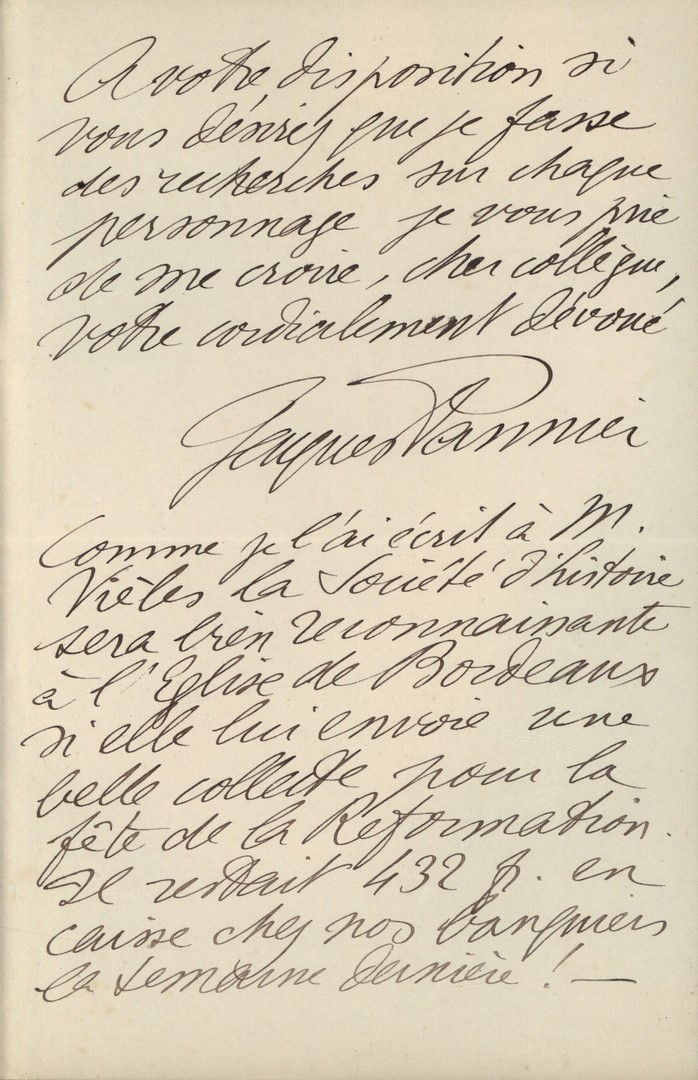 A votre disposition si
vous désirez que je fasse
des recherches sur chaque
personnage je vous prie
de me croire, cher collègue,
votre cordialement dévoué
Jacques Pannier
Comme je l'ai écrit à M.
Vièles la Société d'histoire
sera bien reconnaissante
à l'Eglise de Bordeaux
si elle lui envoie une
belle collecte pour la
fête de la Reformation.
Il restait 432 fr. en
caisse chez nos banquiers
la semaine dernière ! —